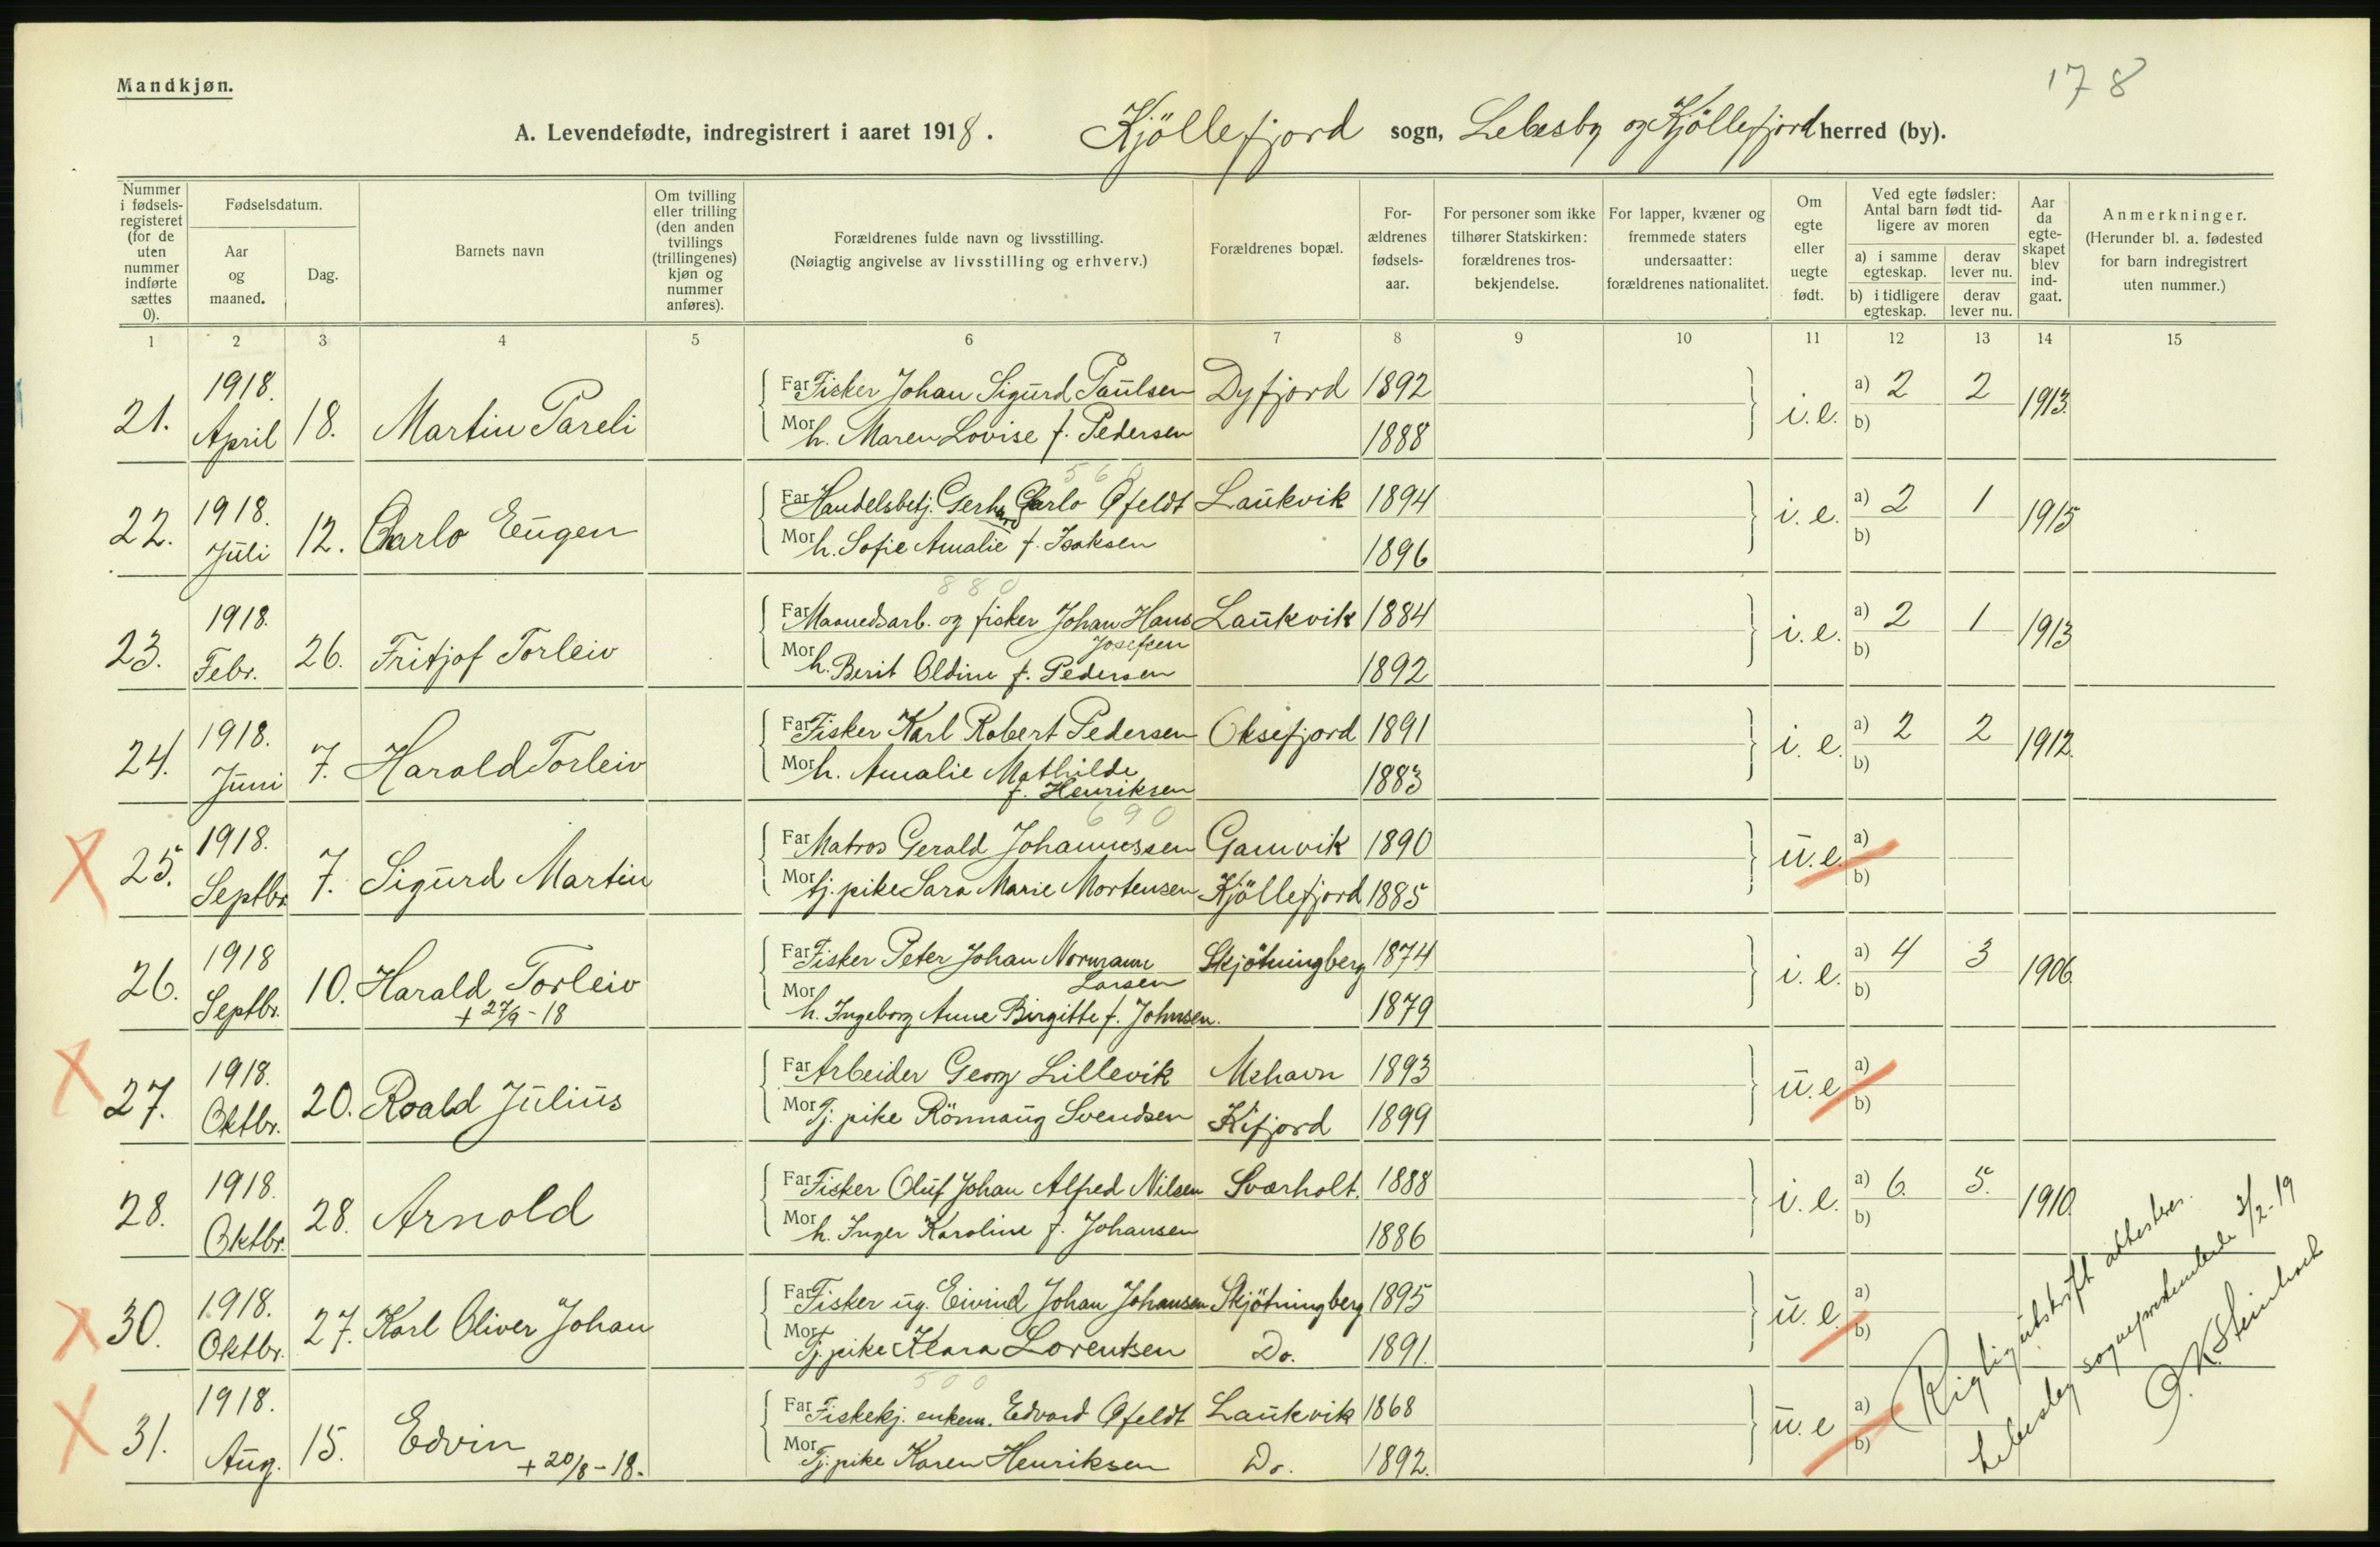 178
Mandkjøn.
A. Levendefødte, indregistrert i aaret 1918. Kjöllefjord sogn, Lebesby og Kjöllefjord herred (by).
Nummer i fødsels-registeret (for de uten nummer indførte sættes 0).
Fødselsdatum.
Aar og maaned.
Dag.
Barnets navn
Om tvilling eller trilling (den anden tvillings (trillingenes) kjøn og nummer anføres).
Forældrenes fulde navn og livsstilling.
(Nøiagtig angivelse av livsstilling og erhverv.)
Forældrenes bopæl.
For-ældrenes fødsels-aar.
For personer som ikke tilhører Statskirken: forældrenes tros-bekjendelse.
For lapper, kvæner og fremmede staters undersaatter: forældrenes nationalitet.
Om egte eller uegte født.
Ved egte fødsler: Antal barn født tid-ligere av moren
a) i samme egteskap.
derav lever nu.
b) i tidligere egteskap.
derav lever nu.
Aar da egte-skapet blev ind-gaat.
Anmerkninger.
(Herunder bl. a. fødested for barn indregistrert uten nummer.)
1 2 3 4 5 6 7 8 9 10 11 12 13 14 15
21. 1918. April 18. Martin Pareli
Far Fisker Johan Sigurd Paulsen Dyfjord 1892
Mor h. Maren Lovise f. Pedersen 1888
i.e. a) 2 2 1913.
b)
560
22. 1918. Juli 12. Charlo Eugen
Far Handelsbetj. Gerhard Charlo Øfeldt Laukvik 1894
Mor h. Sofie Amalie f. Isaksen 1896
i.e. a) 2 1 1915
b)
880
23. 1918. Febr. 26. Fritjof Torleiv
Far Maanedsarb. og fisker Johan Hans Josefsen Laukvik 1884
Mor h. Berit Oldine f. Pedersen 1892
i.e. a) 2 1 1913
b)
24. 1918. Juni 7. Harald Torleiv
Far Fisker Karl Robert Pedersen Oksefjord 1891
Mor h. Amalie Mathilde f. Henriksen 1883
i.e. a) 2 2 1912.
b)
690
25. 1918. Septbr. 7. Sigurd Martin
Far Matros Gerald Johannessen Gamvik 1890
Mor tj. pike Sara Marie Mortensen Kjöllefjord 1885
u.e. a)
b)
26. 1918 Septbr. 10. Harald Torleiv
+ 27/9-18
Far Fisker Peter Johan Normann Larsen Skjötningberg 1874
Mor h. Ingeborg Anne Birgitte f. Johnsen. 1879
i.e. a) 4 3 1906.
b)
27. 1918. Oktbr. 20. Roald Julius
Far Arbeider Georg Lillevik Mehavn 1893
Mor Tj. pike Rönnaug Svendsen Kifjord 1899
u.e. a)
b)
28. 1918. Oktbr. 28. Arnold
Far Fisker Oluf Johan Alfred Nilsen Sværholt. 1888
Mor h. Inger Karoline f. Johansen 1886
i.e. a) 6. 5. 1910.
b)
30. 1918. Oktbr. 27. Karl Oliver Johan
Far Fisker ug. Eivind Johan Johansen Skjötningberg 1895
Mor Tj. pike Klara Lorentsen Do. 1891.
u.e. a)
b)
500
31. 1918. Aug. 15. Edvin
+ 20/8-18.
Far Fiskekj. enkem. Edvard Øfeldt Laukvik 1868
Mor Tj. pike Karen Henriksen Do. 1892.
u.e a)
b)
Rigtig utskrift attesteres.
Lebesby sogneprestembede 3/2-19